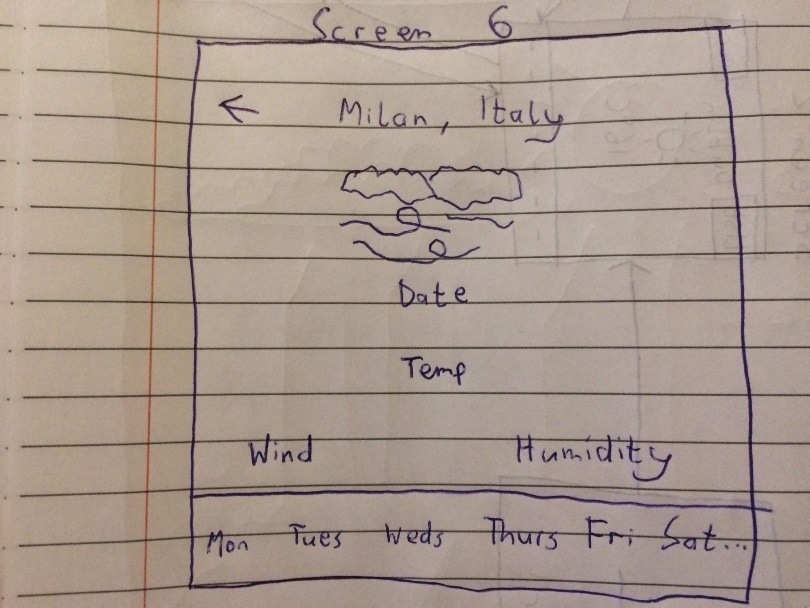 Screen 6
← Milan, Italy
Date
Temp
Wind Humidity
Mon Tues Weds Thurs Fri Sat...